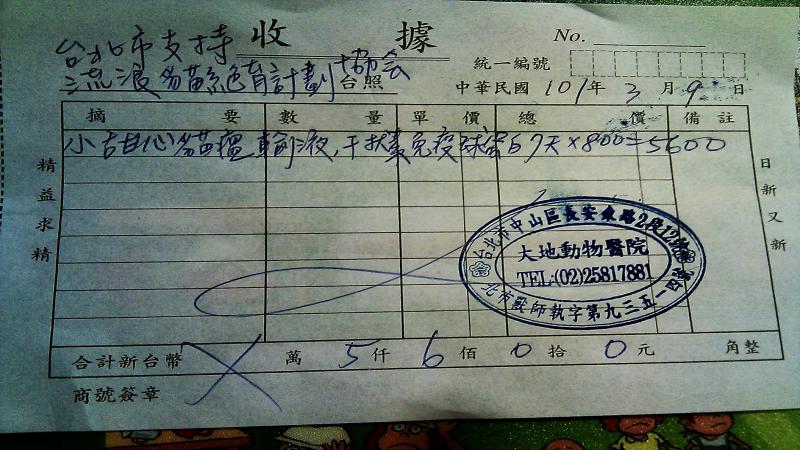 收據
No.
台北市支持
流浪貓絕育計劃協會 台照
統一編號
中華民國 101年 3月 9日
摘要 數量 單價 總價 備註
小甜心貓瘟輸液,干扰素免疫球蛋白7天×800=5600
精益求精
日新又新
台北市中山區長安東路2段12號
大地動物醫院
TEL:(02)25817881
北市獸師執字第九三五一
合計新台幣 X 萬 5仟 6佰 0拾 0元 角整
商號簽章